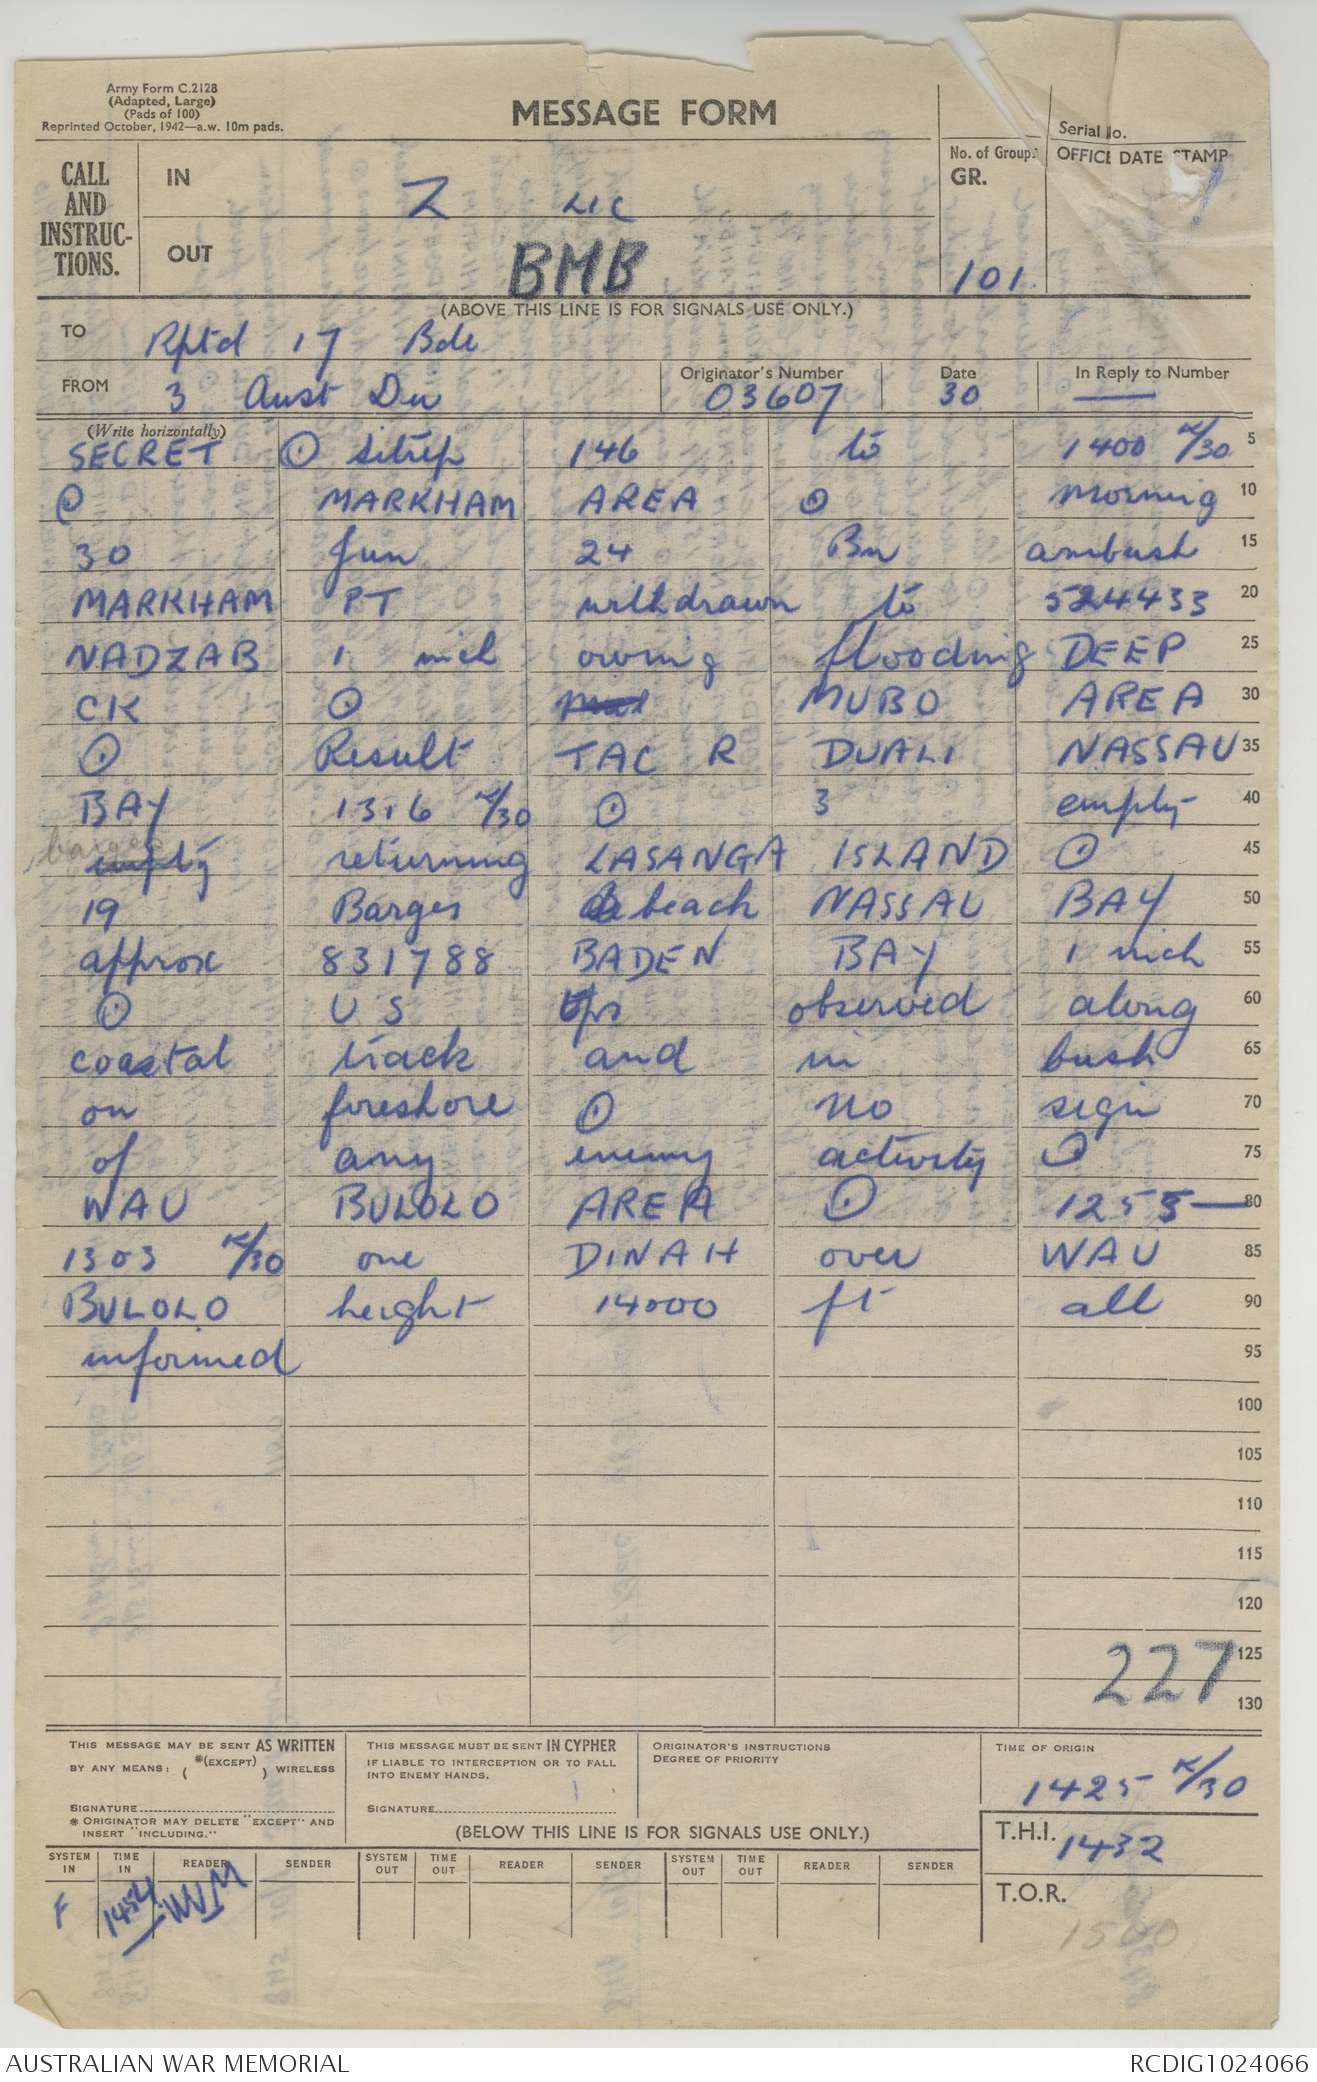 Army Form C.2128
(Adapted, Large)
(Pads of 100)
Reprinted October, 1942—a.w. 10m pads.
MESSAGE FORM
Serial No.
CALL AND INSTRUC-TIONS.
IN
Z LIC
No. of Groups
GR.
101.
OFFICE DATE STAMP
OUT
BMB
(ABOVE THIS LINE IS FOR SIGNALS USE ONLY.)
TO
Rptd 17 Bde
FROM
3 Aust Div
Originator's Number
03607
Date
30
In Reply to Number
(Write horizontally)
SECRET ⊙ sitrep 146 to 1400 K/30 5
⊙ MARKHAM AREA ⊙ morning 10
30 Jun 24 Bn ambush 15
MARKHAM PT withdrawn to 524433 20
NADZAB 1 inch owing flooding DEEP 25
CK ⊙ MUBO AREA 30
⊙ Result TAC R DUALI NASSAU 35
BAY 1316 K/30 ⊙ 3 empty 40
barges empty returning LASANGA ISLAND ⊙ 45
19 Barges beach NASSAU BAY 50
approx 831788 BADEN BAY 1 inch 55
⊙ US tps observed along 60
coastal track and in bush 65
on foreshore ⊙ no sign 70
of any enemy activity ⊙ 75
WAU BULOLO AREA ⊙ 1255— 80
1303 K/30 one DINAH over WAU 85
BULOLO height 14000 ft all 90
informed 95
100
105
110
115
120
125
227
130
THIS MESSAGE MAY BE SENT AS WRITTEN
BY ANY MEANS: ( *(EXCEPT) ) WIRELESS
SIGNATURE
* ORIGINATOR MAY DELETE "EXCEPT" AND
INSERT "INCLUDING."
THIS MESSAGE MUST BE SENT IN CYPHER
IF LIABLE TO INTERCEPTION OR TO FALL
INTO ENEMY HANDS.
SIGNATURE
ORIGINATOR'S INSTRUCTIONS
DEGREE OF PRIORITY
(BELOW THIS LINE IS FOR SIGNALS USE ONLY.)
TIME OF ORIGIN
1425 K/30
T.H.I. 1432
T.O.R.
1500
SYSTEM IN TIME IN READER SENDER SYSTEM OUT TIME OUT READER SENDER SYSTEM OUT TIME OUT READER SENDER
F 1454
AUSTRALIAN WAR MEMORIAL
RCDIG1024066